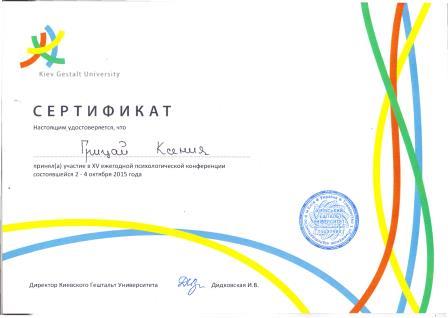 Kiev Gestalt University
СЕРТИФИКАТ
Настоящим удостоверяется, что
Грицай Ксения
принял(а) участие в XV ежегодной психологической конференции
состоявшейся 2 - 4 октября 2015 года
КИЇВСЬКИЙ
ГЕШТАЛЬТ
УНІВЕРСИТЕТ
Директор Киевского Гештальт Университета Дидковская И.В.